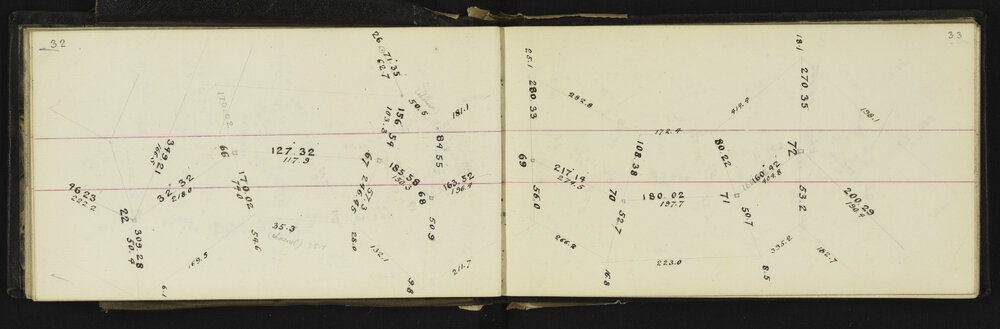 32
26
71.35
62.7
50.5
181.1
156
103.3
54
84 55
66
127.32
117.9
67
185.58
150.5
163.52
196.4
68
349.21
166.5
32.32
218.0
170.02
46.23
222.2
22
309.28
50.4
57.3
246.45
50.9
35.3
54.6
28.0
132.1
169.5
211.7
6.1
9.8
33
18.1
25.1
280.33
282.8
270.35
198.1
172.4
108.38
80.22
72
69
217.14
274.5
160.42
404.8
56.0
70
180.02
197.7
71
53.2
200.29
190.4
52.7
50.7
266.2
395.2
182.7
223.0
16.8
8.5